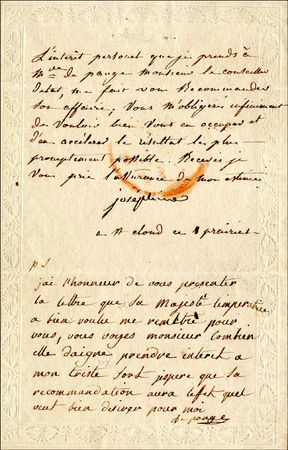 L'interit personel que je prends à
Mme de pange monsieur le conseiller
detat, me fait vous Recommander
son affaire, Vous m'obligerez infiniment
de vouloir bien vous en occuper et
d'en accelerer le resultat le plus
promptement possible. Recevez je
vous prie l'assurence de mon estime
joséphine
a st cloud ce 8 prairial
p s
j'ai l'honneur de vous presenter
la lettre que sa Majesté l'imperatrice
a bien voulue me remettre pour
vous, vous voyes monsieur combien
elle daigne prendre interit a
mon triste sort j'espere que sa
recommandation aura l'efet quel
veut bien desirer pour moi
de pange